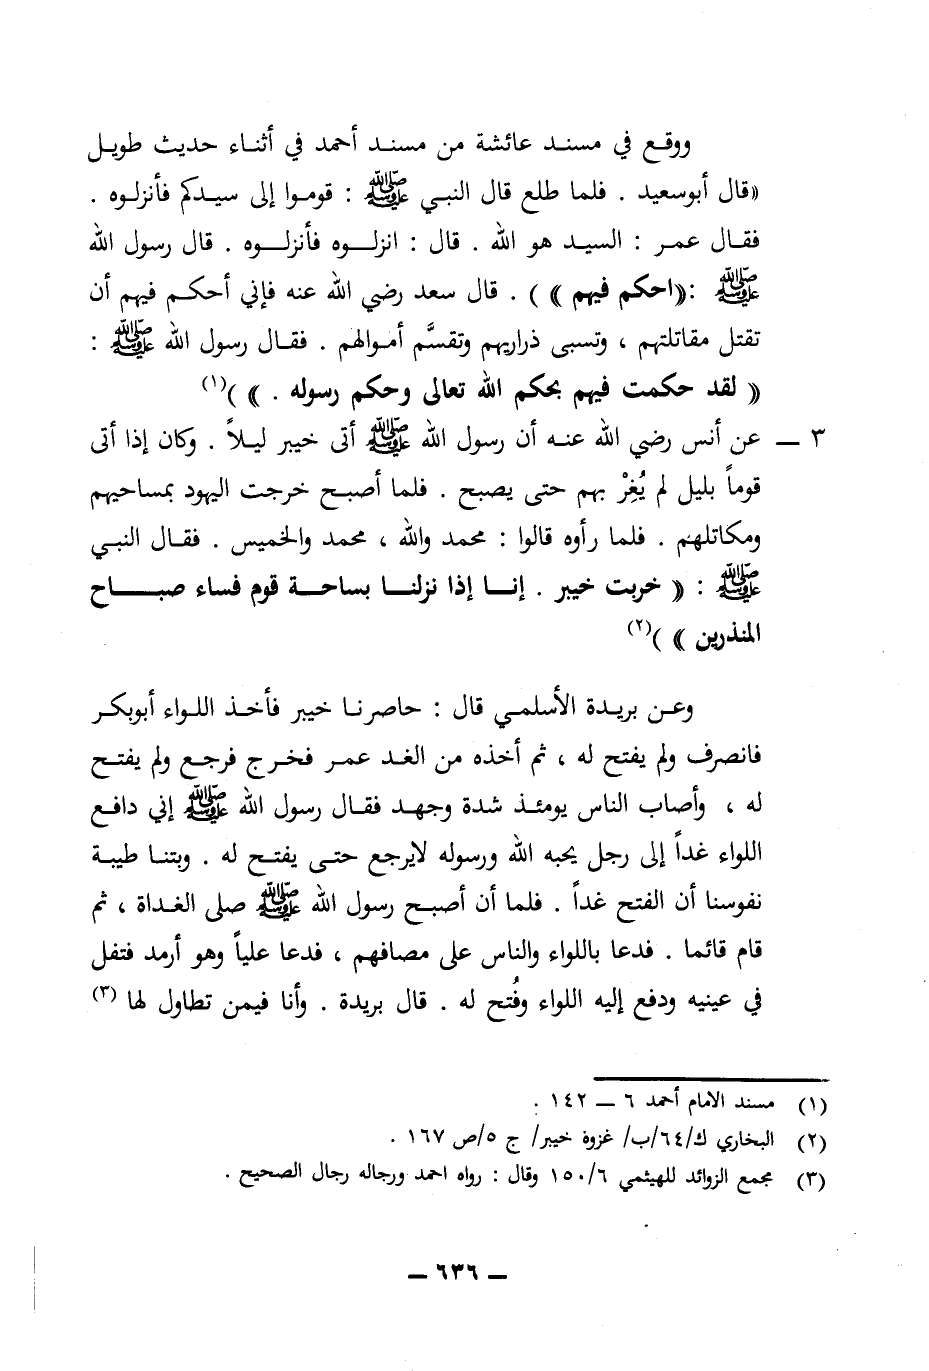 ووقـع في مسنـد عائشة من مسنـد أحمد في أثنـاء حديث طويـل
((قال أبوسعيد . فلما طلع قال النبـي ﷺ : قومـوا إلى سيـدكم فأنزلـوه .
فقـال عمـر : السيـد هو الله . قال : انزلـوه فأنزلـوه . قال رسول الله
ﷺ :((احكم فيهم )) ) . قال سعد رضي الله عنه فإني أحكـم فيهم أن
تقتل مقاتلتهم ، وتسبى ذراريهم وتقسَّم أمـوالهم . فقـال رسول الله ﷺ :
(( لقد حكمت فيهم بحكم الله تعالى وحكم رسوله . )) )(١)
٣ — عن أنس رضي الله عنـه أن رسول الله ﷺ أتى خيبر ليـلاً . وكان إذا أتى
قوماً بليل لم يُغِرْ بهم حتى يصبح . فلمـا أصبـح خرجت اليهود بمساحيهم
ومكاتلهم . فلما رأوه قالوا : محمد والله ، محمد والخميس . فقـال النبـي
ﷺ : (( خربت خيبر . إنـا إذا نزلنـا بساحـة قوم فساء صبـاح
المنذرين )) )(٢)
وعـن بريدة الأسلمـي قال : حاصرنـا خيبر فأخـذ اللـواء أبوبكـر
فانصرف ولم يفتح له ، ثم أخذه من الغـد عمـر فخـرج فرجـع ولم يفتـح
له ، وأصاب الناس يومئـذ شدة وجهـد فقـال رسول الله ﷺ إني دافـع
اللواء غداً إلى رجل يحبه الله ورسوله لايرجع حتـى يفتـح له . وبتنـا طيبـة
نفوسنا أن الفتح غداً . فلما أن أصبـح رسول الله ﷺ صلى الغـداة ، ثم
قام قائما . فدعا باللواء والناس على مصافهم ، فدعا علياً وهو أرمد فتفل
في عينيه ودفع إليه اللواء وفُتح له . قال بريدة . وأنا فيمن تطاول لها (٣)
(١) مسند الامام أحمد ٦ — ١٤٢ .
(٢) البخاري ك/٦٤/ب/ غزوة خيبر/ ج ٥/ص ١٦٧ .
(٣) مجمع الزوائد للهيثمي ١٥٠/٦ وقال : رواه احمد ورجاله رجال الصحيح .
— ٦٣٦ —